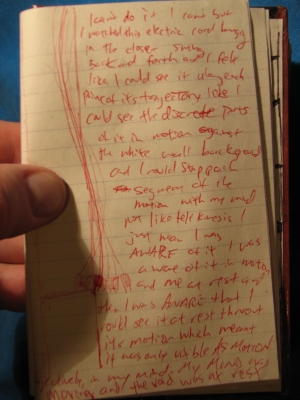 I can't do it I can't but
I watched this electric cord hanging
in the closet swing
back and forth and I felt
like I could see it along each
point of its trajectory like I
could see the discrete parts
of it in motion against
the white wall background
and I could stop each
segment of the
motion with my mind
just like telekinesis I
just now I was
AWARE of it I was
aware of it in motion
and me at rest and
then I was AWARE that I
could see it at rest throughout
its motion which meant
it was only visible AS MOTION
in my mind. My MIND was
moving and the was at rest